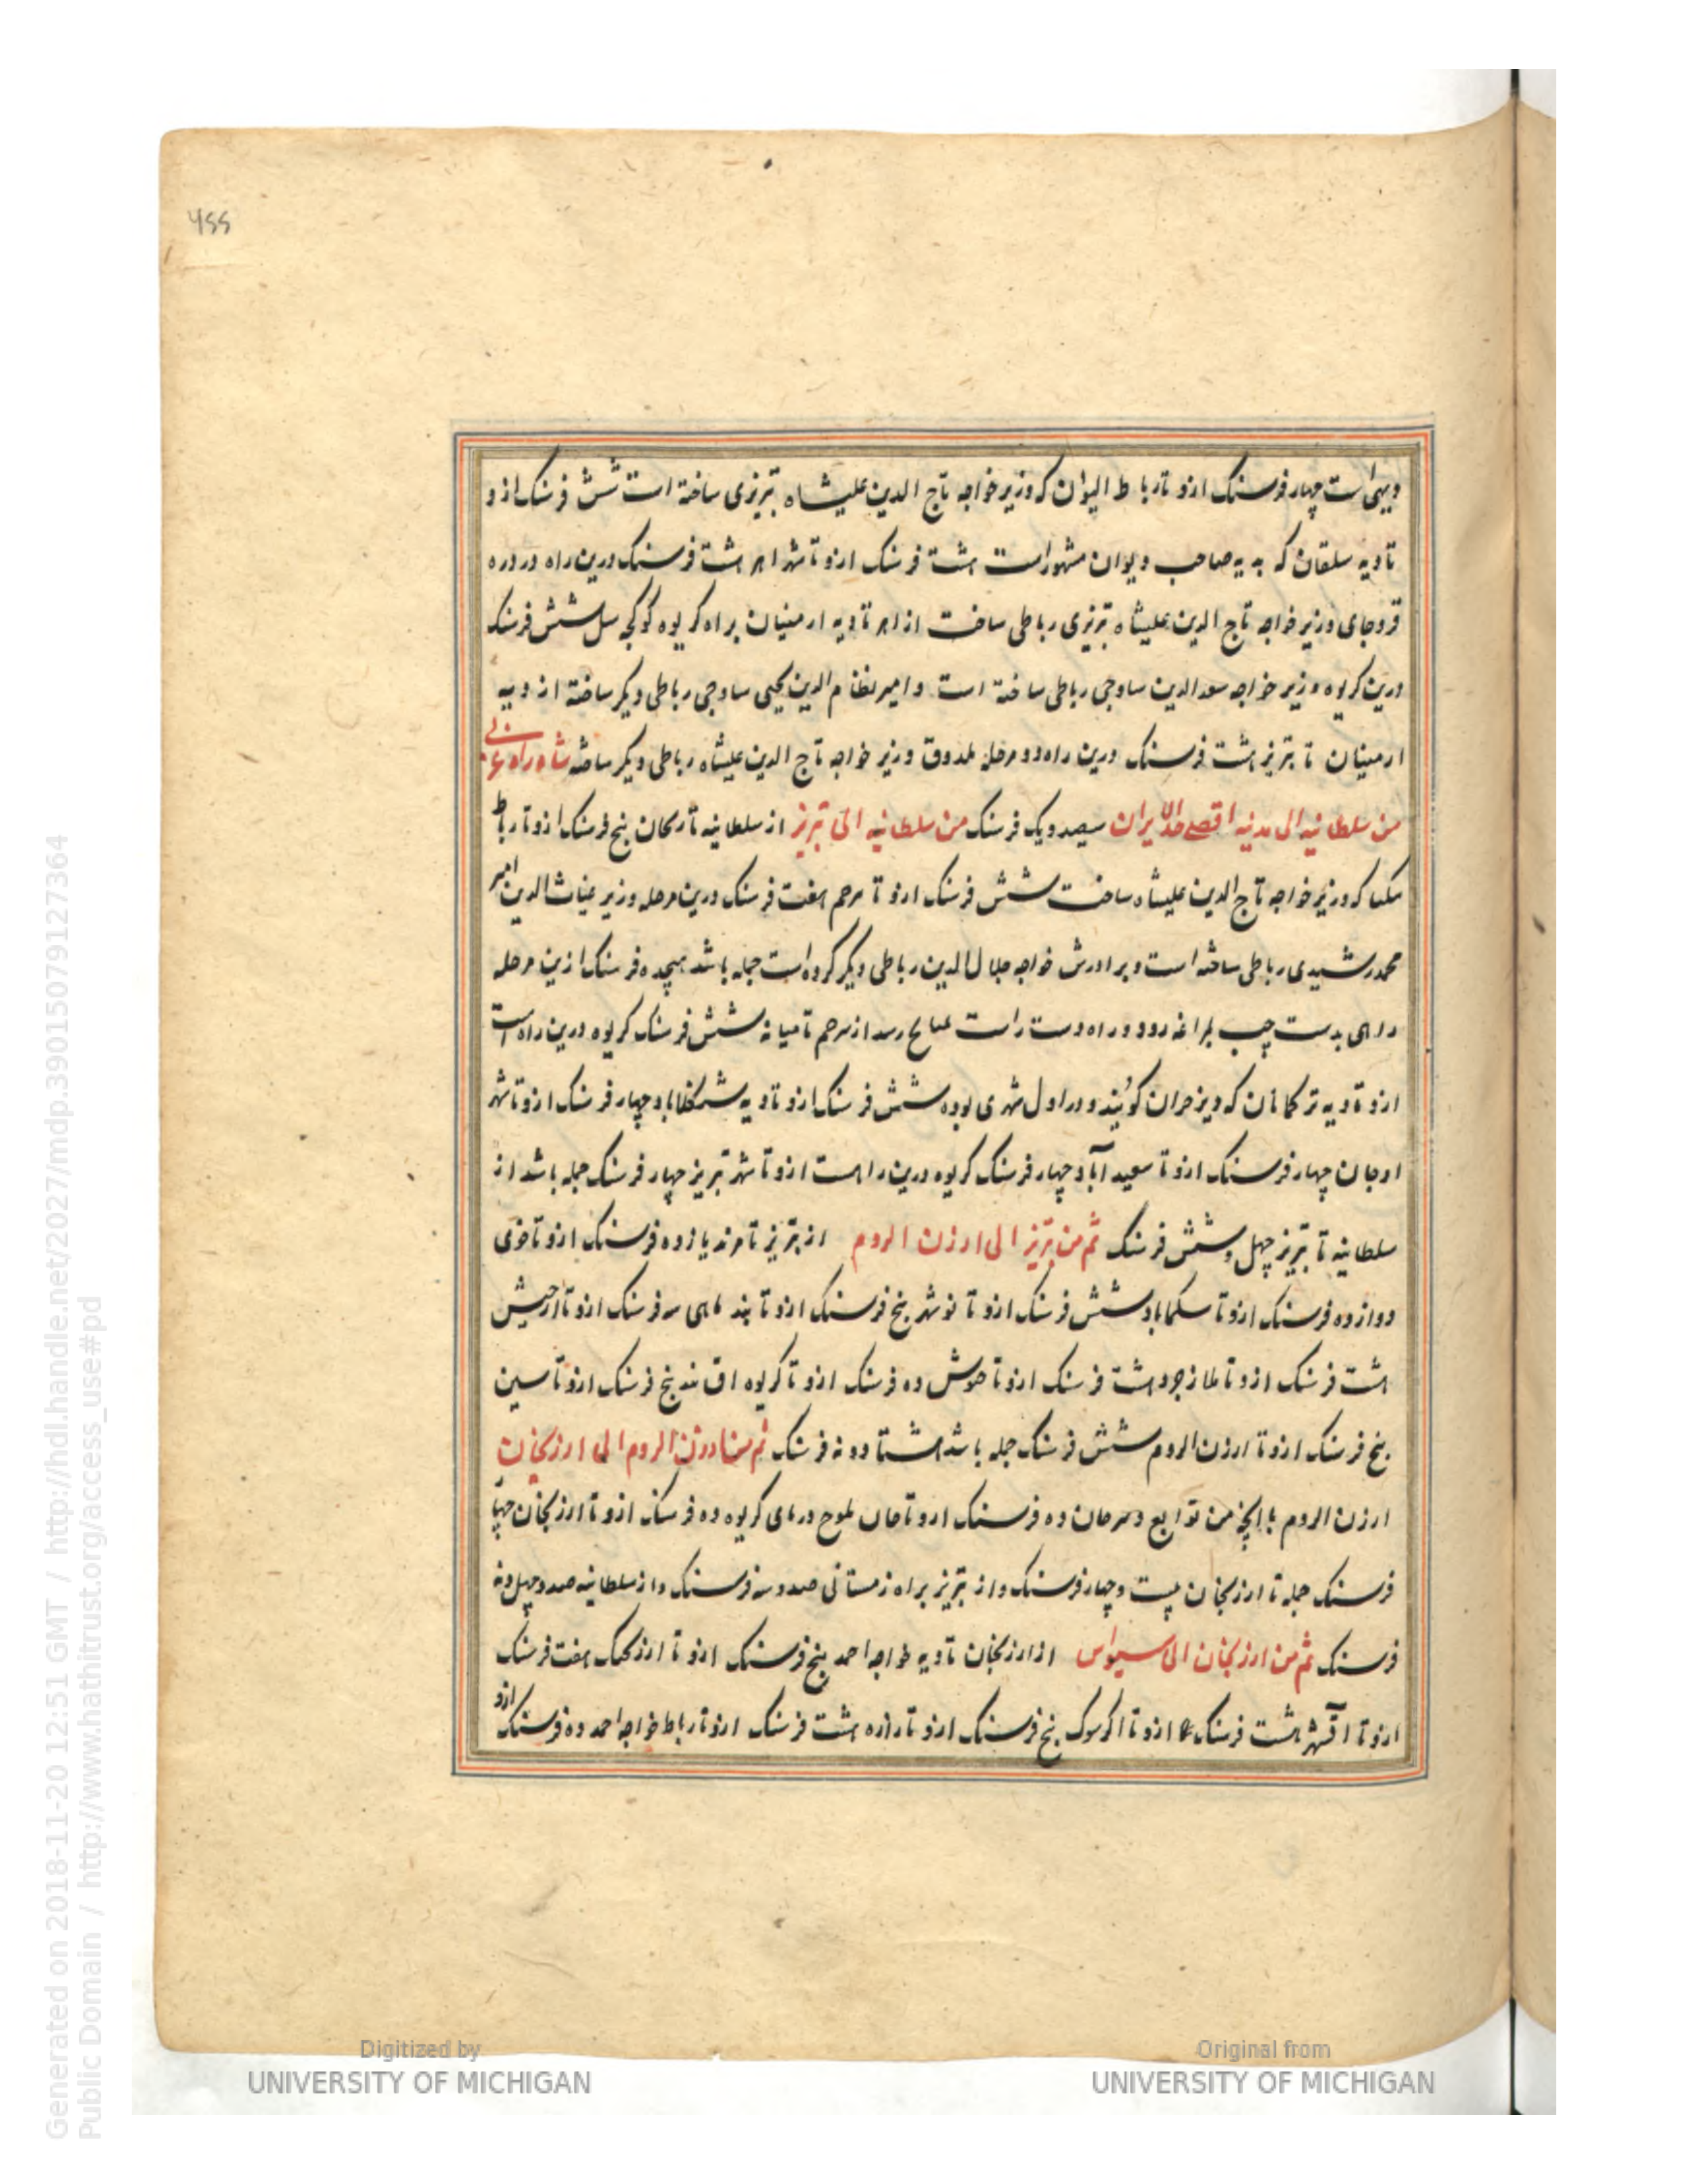 ۴۵۵
دیهی است چهار فرسنک ازو تا رباط الیوان که وزیر خواجه تاج الدین علیشاه تبریزی ساخته است شش فرسنک ازو
تا دیه سلقان که به یه صاحب دیوان مشهور است هشت فرسنک ازو تا شهر اهر هشت فرسنک درین راه در دره
قروجای وزیر خواجه تاج الدین علیشاه تبریزی رباطی ساخت از اهر تا دیه ارمنیان براه کریوه کوکجه سل شش فرسنک
درین کریوه وزیر خواجه سعد الدین ساوجی رباطی ساخته است و امیر نظام الدین یحیی ساوجی رباطی دیکر ساخته از دیه
ارمنیان تا تبریز هشت فرسنک درین راه دو مرحله وزیر خواجه تاج الدین علیشاه رباطی دیکر ساخته شاه راه غربی
من سلطانیه الی مدینه اقصی حد ایران سیصد و یک فرسنک من سلطانیه الی تبریز از سلطانیه تا زنکان پنج فرسنک ازو تا رباط
که وزیر خواجه تاج الدین علیشاه ساخت شش فرسنک ازو تا سرجم هفت فرسنک درین مرحله وزیر غیاث الدین امیر
محمد رشیدی رباطی ساخته است و برادرش خواجه جلال الدین رباطی دیکر کرده است جمله باشد هیجده فرسنک ازین مرحله
راهی بدست چپ بمراغه رود و راه دست راست رسد از سرجم تا میانه شش فرسنک کریوه درین راه است
ازو تا دیه ترکمانان که کویند و در اول شهری بوده شش فرسنک ازو تا دیه چهار فرسنک ازو تا شهر
اوجان چهار فرسنک ازو تا سعید آباد چهار فرسنک کریوه درین راهست ازو تا شهر تبریز چهار فرسنک جمله باشد از
سلطانیه تا تبریز چهل و شش فرسنک ثم من تبریز الی ارزن الروم از تبریز تا مرند یازده فرسنک ازو تا خوی
دوازده فرسنک ازو تا سکماباد شش فرسنک ازو تا نوشهر پنج فرسنک ازو تا بند ماهی سه فرسنک ازو تا ارجیش
هشت فرسنک ازو تا ملازجرد هشت فرسنک ازو تا خنوش ده فرسنک ازو تا کریوه پنج فرسنک ازو تا سین
پنج فرسنک ازو تا ارزن الروم شش فرسنک جمله باشد هشتاد و نه فرسنک ثم من ارزن الروم الی ارزنجان
ارزن الروم تا من توابع ده فرسنک ازو تا کریوه ده فرسنک ازو تا ارزنجان چهار
فرسنک جمله تا ارزنجان بیست و چهار فرسنک و از تبریز براه زمستانی صد و سه فرسنک و از سلطانیه صد و چهل و نه
فرسنک ثم من ارزنجان الی سیواس از ارزنجان تا دیه خواجه احمد پنج فرسنک ازو تا ارزنجک هفت فرسنک
ازو تا آقشهر هشت فرسنک ازو تا اکرسوک پنج فرسنک ازو تا زاره هشت فرسنک ازو تا رباط خواجه احمد ده فرسنک ازو
Generated on 2018-11-20 12:51 GMT / http://hdl.handle.net/2027/mdp.39015079127364
Public Domain / http://www.hathitrust.org/access_use#pd
Digitized by
UNIVERSITY OF MICHIGAN
Original from
UNIVERSITY OF MICHIGAN